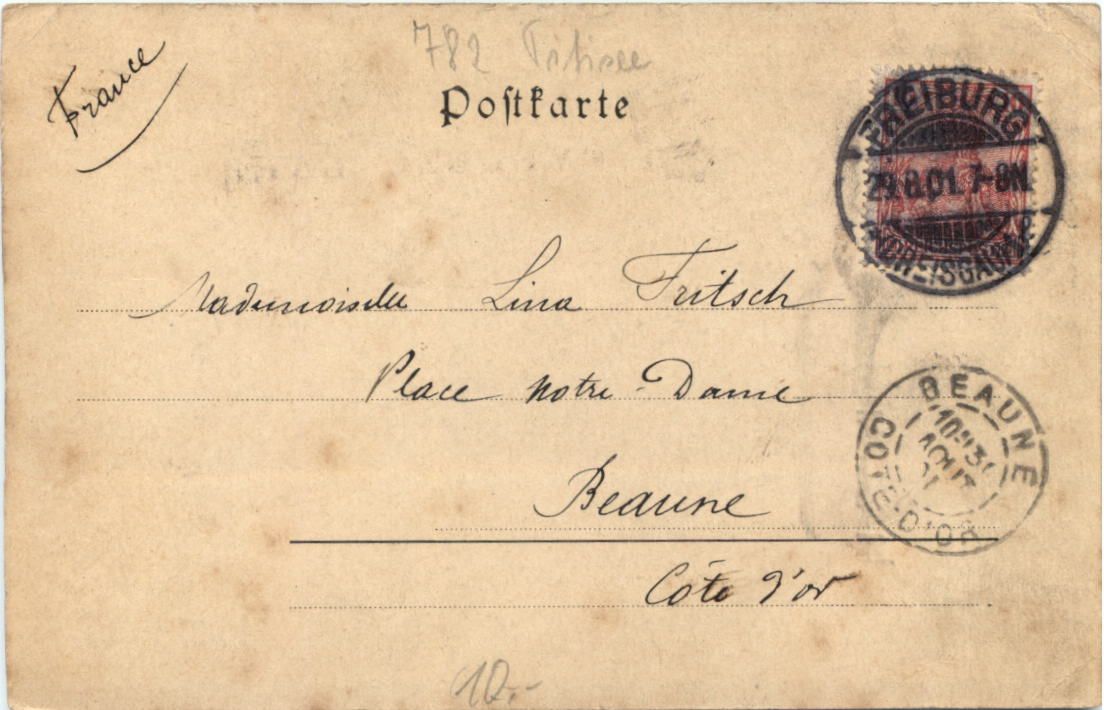 782 Titisee
France
Postkarte
FREIBURG
29.8.01. 7-8N.
(BREISGAU)
Mademoiselle Lina Fritsch
Place Notre-Dame
BEAUNE
30
AOUT
01
COTE-D'OR
Beaune
Côte d'or
10.-